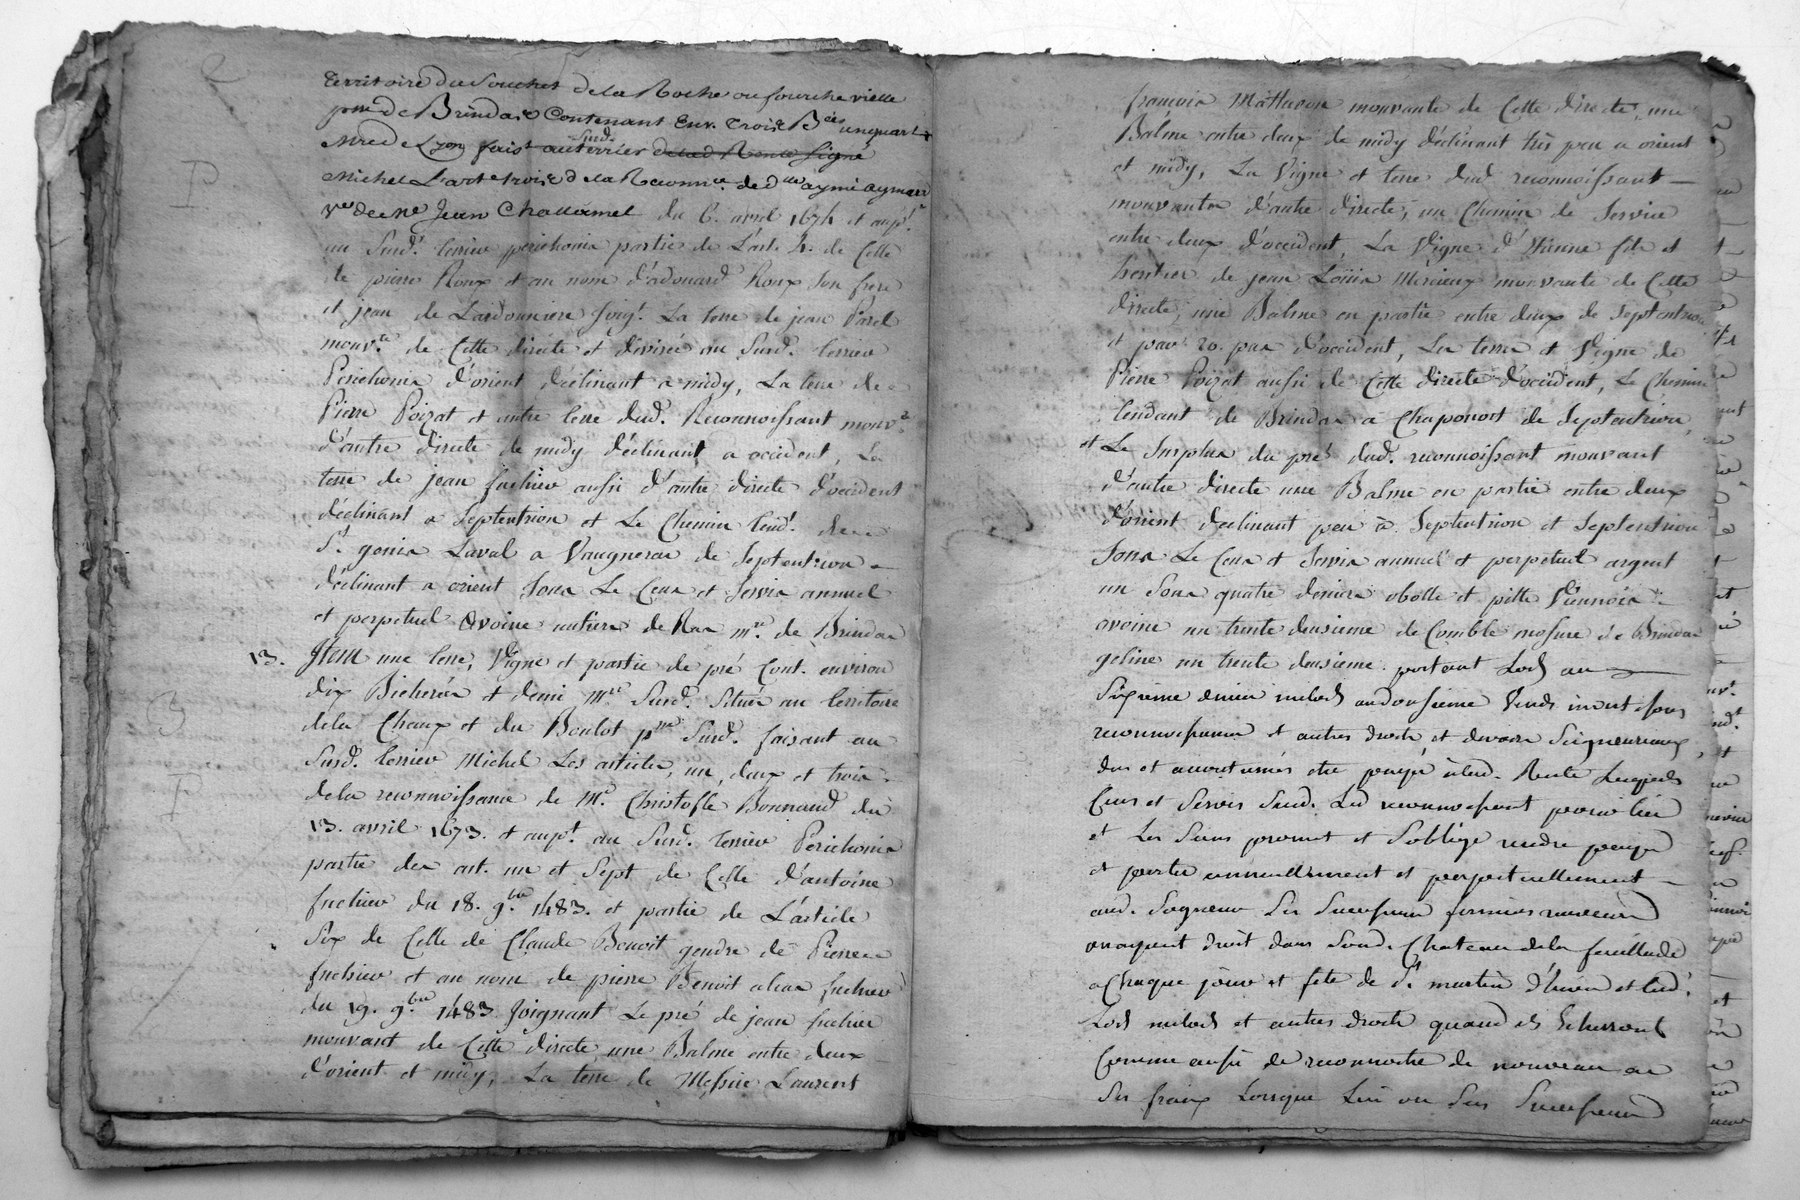 territoire du Souchet de la Roche ou fourche vielle
psse de Brindas Contenant Env. trois Bées un quart
mre de Lyon faist au Surd. terrier de lad Rente Signé
Michel L'art trois de la Reconnce. de dlle aymé aymar
Vve de Me Jean Challamel du 6. avril 1674 et aupt.
au Surd. terrier perichonis partie de L'art. 4. de Celle
de pierre Roux et au nom d'adouard Roux Son frere
et jean de Lardonniere joigt. La terre de jean Parel
mouvte de Cette directe et divisée au Surd. terrier
Perichonis d'orient déclinant a midy, La terre de
Pierre Poizat et autre terre dud. Reconnoissant mouvte
d'autre directe de midy déclinant a occident, La
terre de jean fuchier aussi d'autre directe d'occident
déclinant a Septentrion et Le Chemin tendt. de
St. genis Laval a Vaugneray de Septentrion
déclinant a orient Sous Le Cens et Servis annuel
et perpetuel avoine entiere de Ras mre. de Brindas
13. Item une terre, Vigne et partie de pré Cont. environ
dix Bicherées et demi mre Surd. Situés au territoire
de la Chaux et du Boulot psse Surd. faisant au
Surd. terrier Michel Les articles, un, deux et trois
de la reconnoissance de Me. Christofle Bonnaud du
13. avril 1673. et aupt. au Surd. terrier Perichonis
partie des art. un et Sept de Celle d'antoine
fuchier du 18. 9.bre 1483. et partie de L'article
Six de Celle de Claude Benoit gendre de Pierre
fuchier et au nom de pierre Benoit alias fuchier
du 19. 9.bre 1483 Joignant Le pré de jean fuchier
mouvant de Cette directe, une Balme entre deux
d'orient et midy, La terre de Messire Laurent
françois Mathevon mouvante de Cette directe, une
Balme entre deux de midy déclinant très peu a orient
et midy, La Vigne et terre dud reconnoissant
mouvantes d'autre directe, un Chemin de Service
entre deux d'occident, La Vigne d'Etienne fils et
heritier de jean Loüis Mercieux mouvante de Cette
directe, une Balme en partie entre deux de Septentrion
et par 20. pas d'occident, La terre et Vigne de
Pierre Poizat aussi de Cette directe d'occident, Le Chemin
tendant de Brindas a Chaponost de Septentrion,
et Le Surplus du pré dud. reconnoissant mouvant
d'autre directe une Balme en partie entre deux
d'orient declinant peu à Septentrion et Septentrion
Sous Le Cens et Servis annuel et perpetuel argent
un Sous quatre deniers obolle et pitte Viennois
avoine un trente deuxieme de Comble mesure de Brindas
geline un trente deuxieme. portant Lods au
Sixieme denier milods au douzieme Vends inventions
reconnoissances et autres droits et devoirs Seigneuriaux
dus et accoutumés être payés à lad. Rente Lesquels
Cens et Servis Susd. Led reconnoissant pour lui
et Les Siens promet et S'oblige rendre payer
et porter annuellement et perpetuellement
aud. Seigneur Ses Successeurs fermiers receveurs
ou ayant droit dans Sond. Chateau de la feuillade
a Chaque jour et fete de St martin d'hiver et Lesd.
Lods milods et autres droits quand ils Echerront
Comme aussi de reconnoitre de nouveau a
Ses fraix Lorsque Lui ou Ses Successeurs